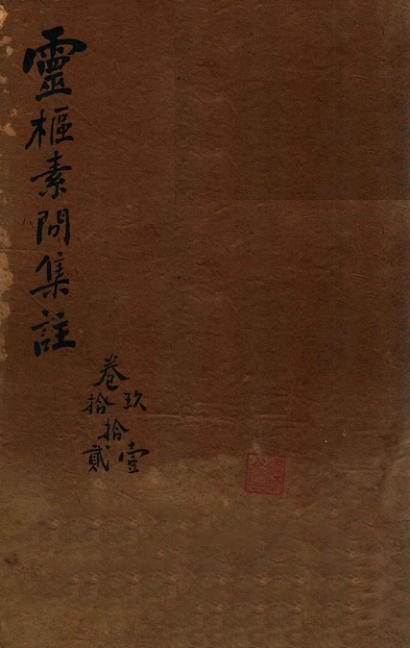 靈樞素問集註
卷
玖拾
拾
壹貳